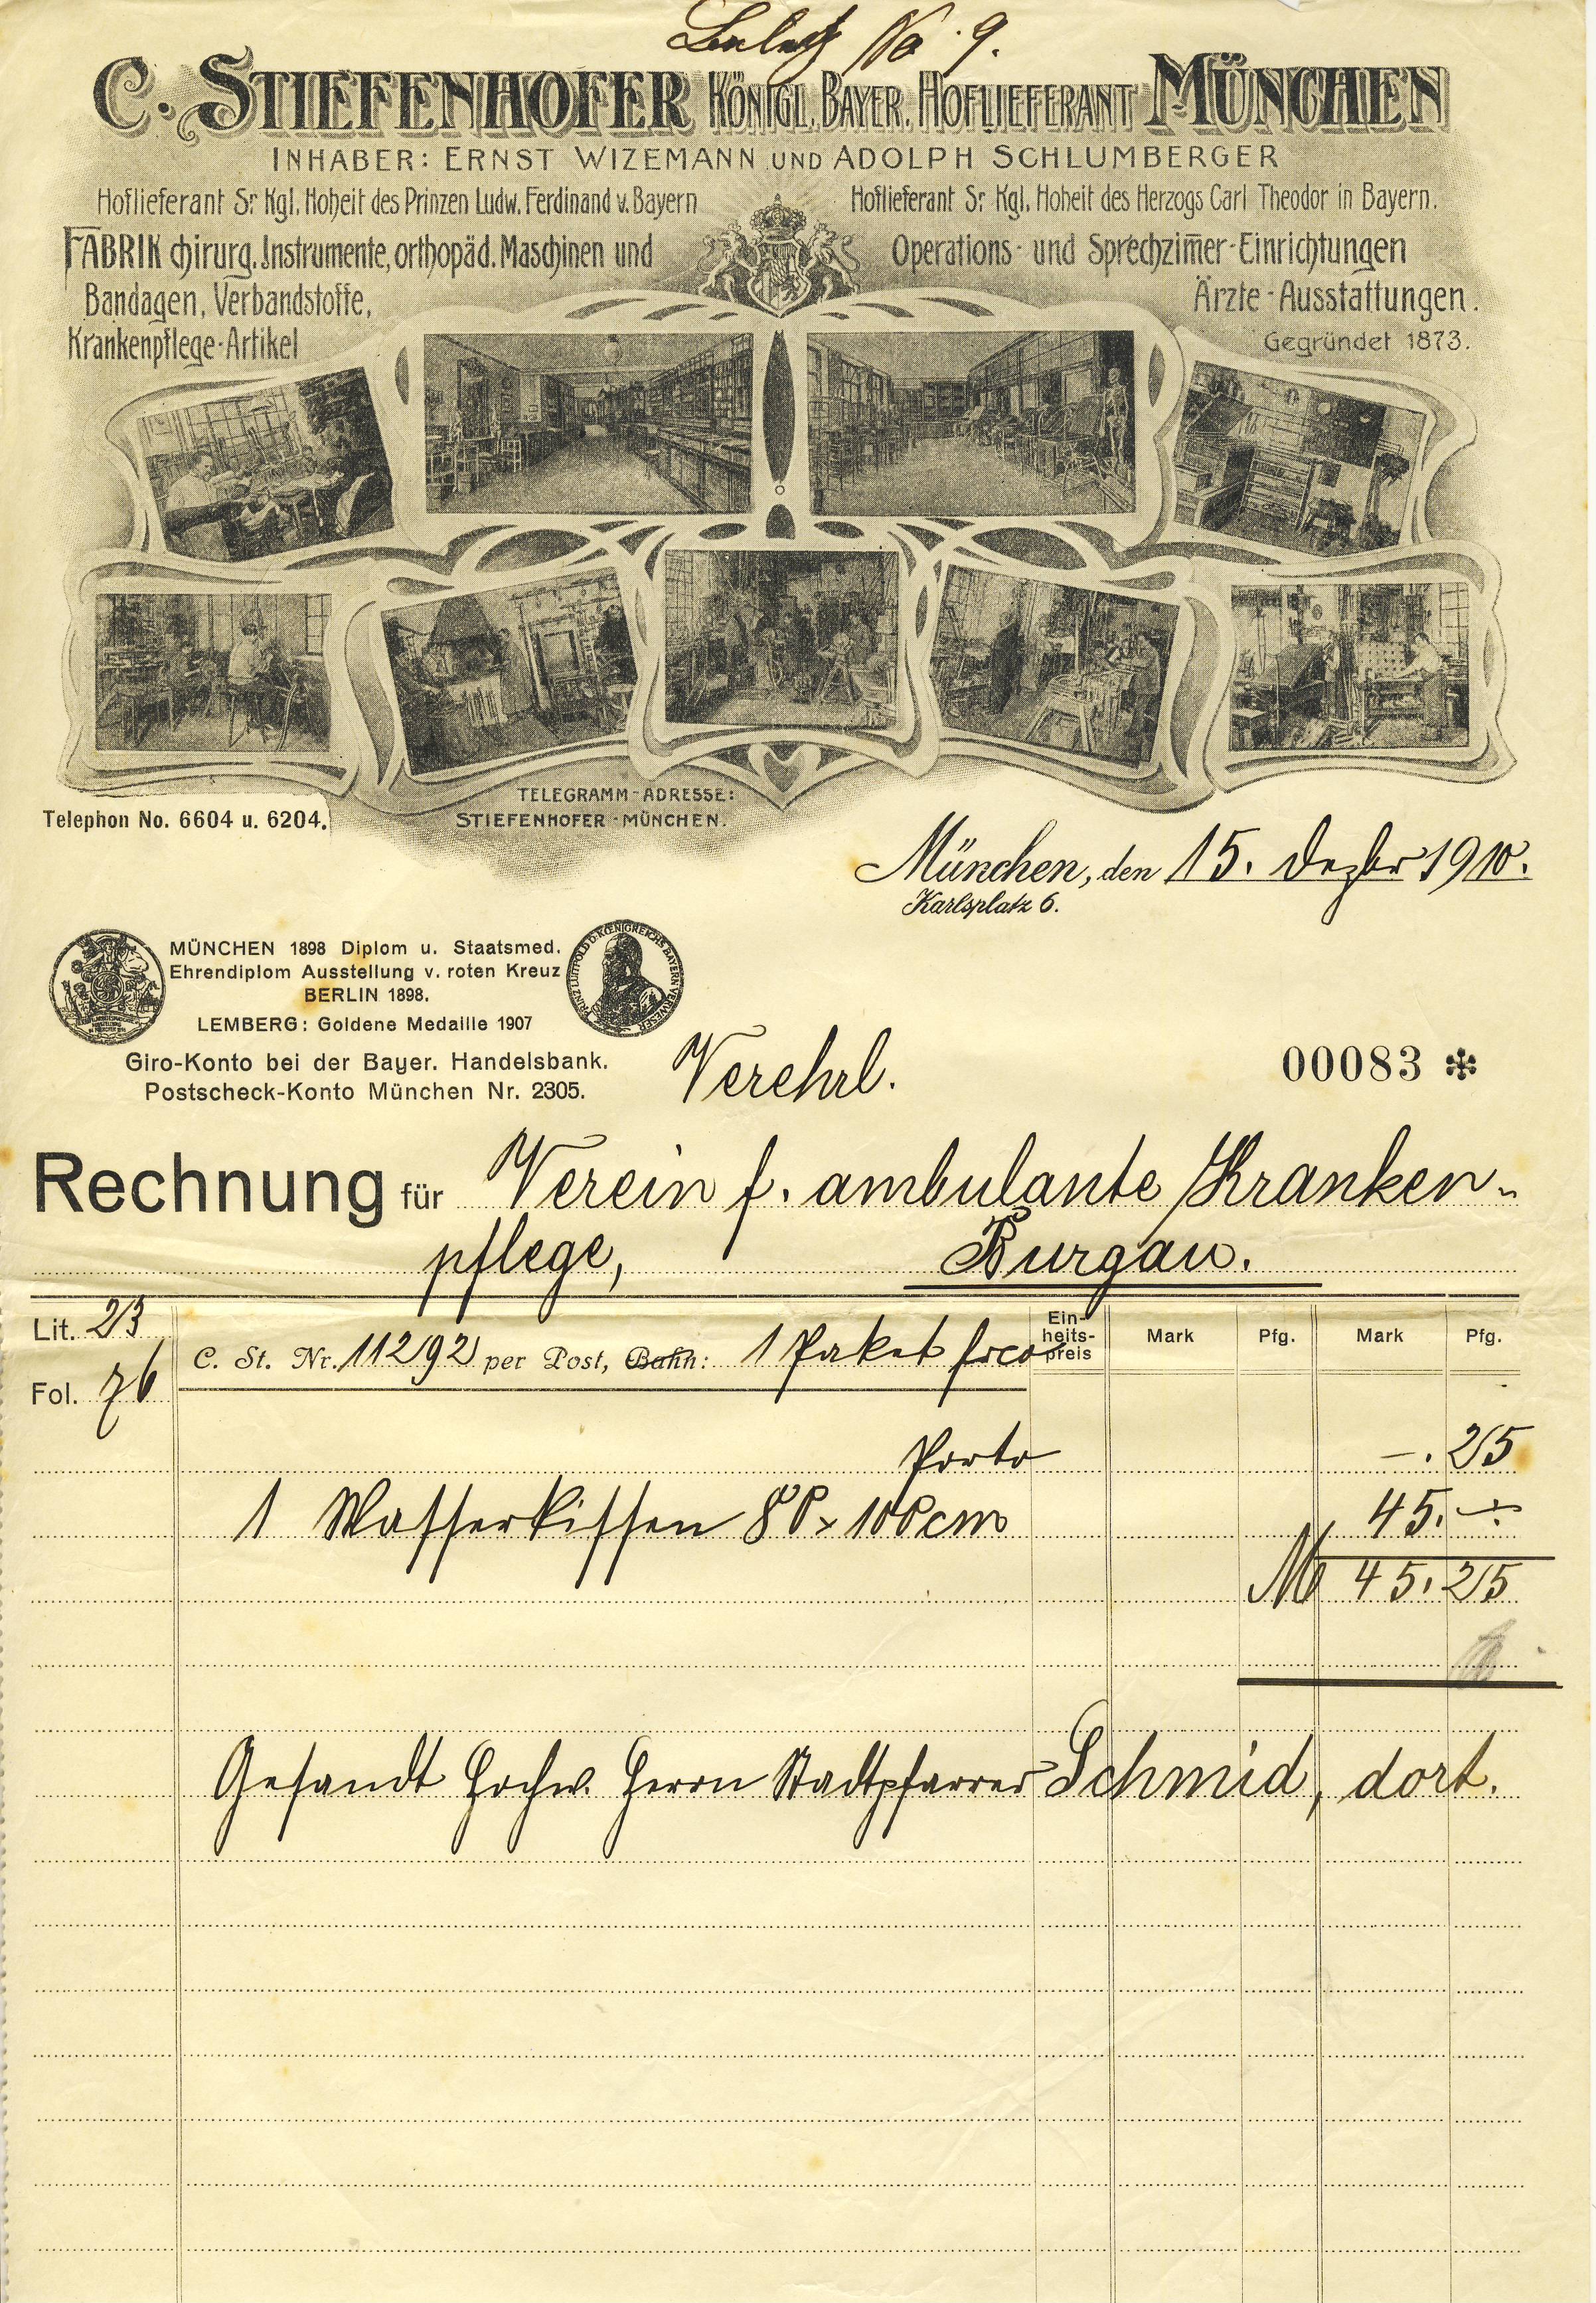 Beleg No. 9.
C. STIEFENHOFER KÖNIGL. BAYER. HOFLIEFERANT MÜNCHEN
INHABER: ERNST WIZEMANN UND ADOLPH SCHLUMBERGER
Hoflieferant Sr. Kgl. Hoheit des Prinzen Ludw. Ferdinand v. Bayern
Hoflieferant Sr. Kgl. Hoheit des Herzogs Carl Theodor in Bayern.
FABRIK chirurg. Instrumente, orthopäd. Maschinen und
Bandagen, Verbandstoffe,
Krankenpflege-Artikel
Operations- und Sprechzim̄er-Einrichtungen
Ärzte-Ausstattungen.
Gegründet 1873.
TELEGRAMM-ADRESSE:
STIEFENHOFER-MÜNCHEN.
Telephon No. 6604 u. 6204.
München, den 15. Dezbr 1910.
Karlsplatz 6.
MÜNCHEN 1898 Diplom u. Staatsmed.
Ehrendiplom Ausstellung v. roten Kreuz
BERLIN 1898.
LEMBERG: Goldene Medaille 1907
PRINZ LUITPOLD D. KŒNIGREICHS BAYERN VERWESER
Giro-Konto bei der Bayer. Handelsbank.
Postscheck-Konto München Nr. 2305.
Verehrl.
00083 *
Rechnung für Verein f. ambulante Kranken-
pflege, Burgau.
Lit. 23
Fol. 76
C. St. Nr. 11292 per Post, Bahn: 1 Paket frco
Ein-
heits-
preis
Mark Pfg. Mark Pfg.
Porto —. 25
1 Wasserkissen 80 x 100 cm 45. —
M 45. 25
Gesandt Hochw. Herrn Stadtpfarrer Schmid, dort.